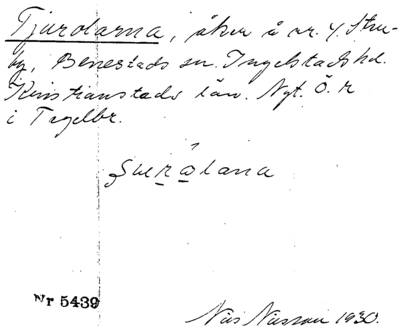 Tjurolarna, åker å nr. 4. Stru-
by, Benestads sn. Ingelstads hd.
Kristianstads län. Ngt. Ö. n
i Tegelbr.
Nr 5439
Nils Nilsson 1930.